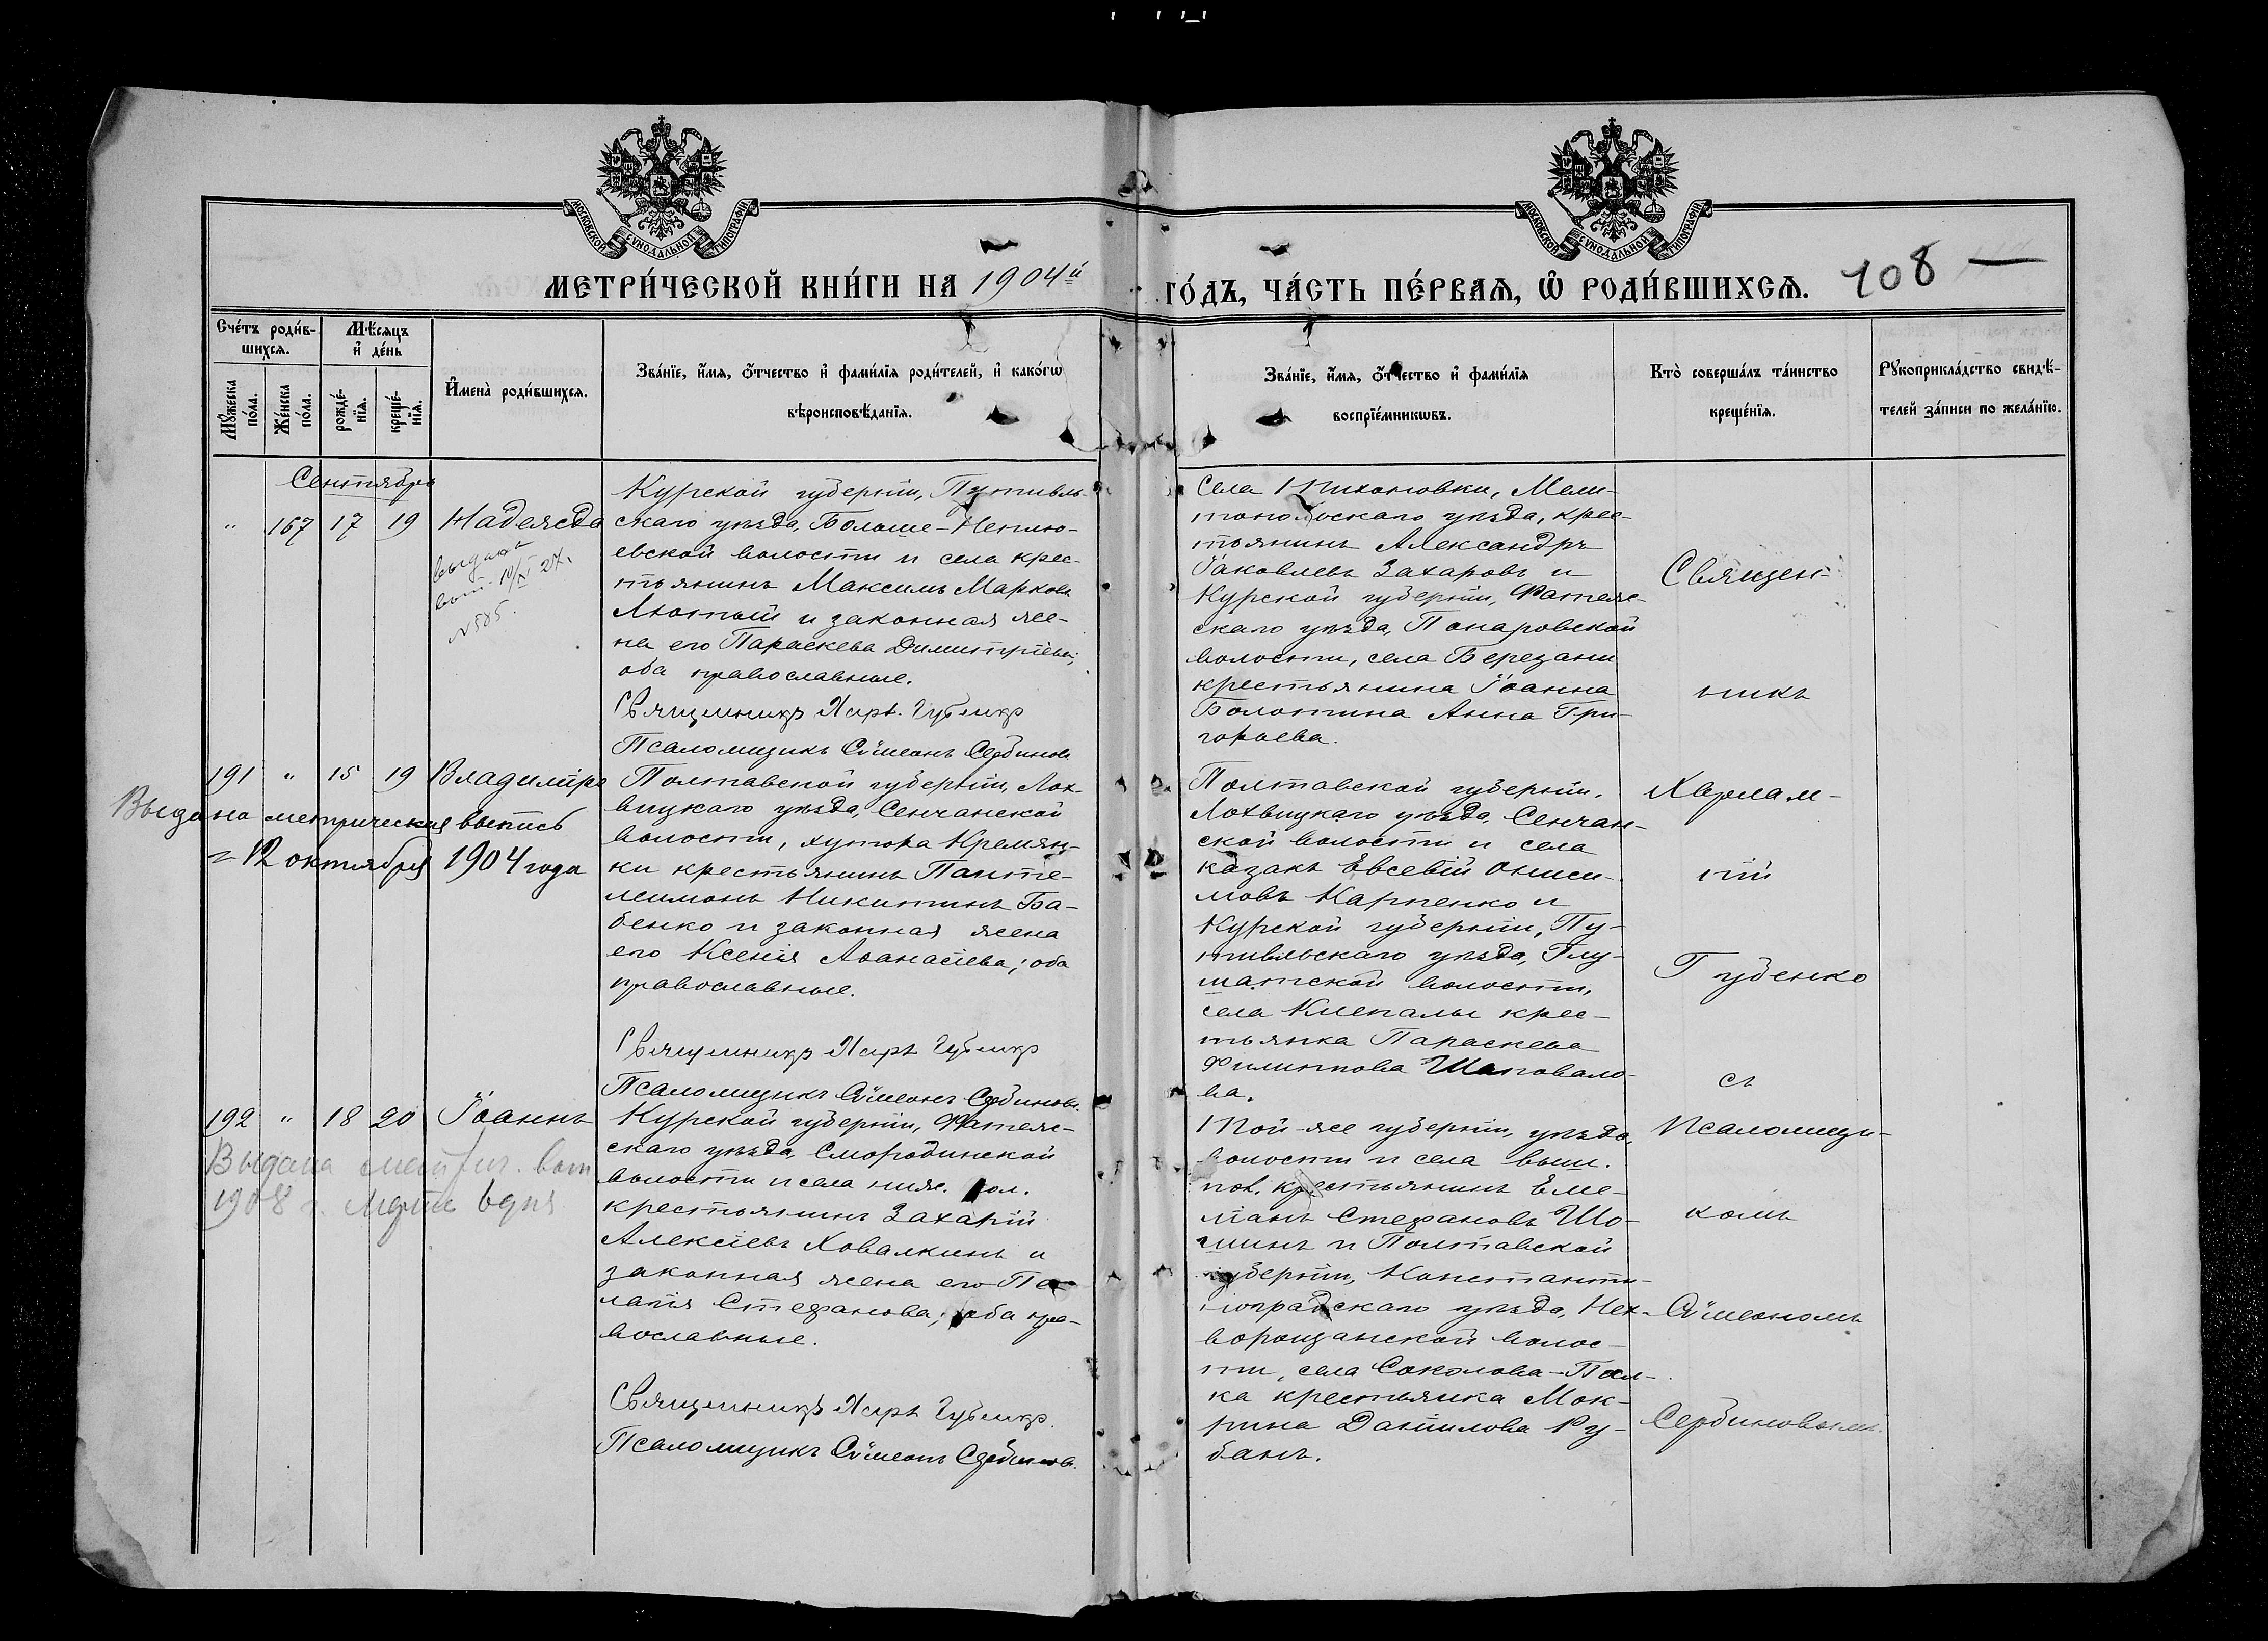 МОСКОВСКОЙ СУНОДАЛЬНОЙ ТИПОГРАФІИ
МОСКОВСКОЙ СУНОДАЛЬНОЙ ТИПОГРАФІИ
МЕТРИ́ЧЕСКОЙ КНИ́ГИ НА 1904й
ГО́ДЪ, ЧА́СТЬ ПЕ́РВАѦ, Ѽ РОДИ́ВШИХСѦ. 108 —
Сче́тъ роди́в-
шихсѧ.
Мѣ́сяцъ
и҆ де́нь
Мꙋ́жеска
по́ла.
Же́нска
по́ла.
рожде́-
нїѧ.
креще́-
нїѧ.
И҆мена̀ роди́вшихсѧ.
Зва́нїе, и҆́мѧ, ѻ҆́тчество и҆ фами́лїѧ роди́телей, и҆ како́гѡ
вѣроисповѣ́данїѧ.
Зва́нїе, и҆́мѧ, ѻ҆́тчество и҆ фами́лїѧ
воспрїе́мникѡвъ.
Кто̀ соверша́лъ та́инство
креще́нїѧ.
Рꙋкоприкла́дство свидѣ́-
телей за́писи по жела́нїю.
Сентябрь
" 167 17 19 Надежда
выдана
вып. 10/XI 27г.
№ 585.
Курской губерніи, Путивль-
скаго уѣзда, Больше-Неплю-
евской волости и села крес-
тьянинъ Максимъ Марковъ
Лютый и законная же-
на его Параскева Димитріева;
оба православные.
Священникъ Харл. Губенко
Псаломщикъ Сѵмеонъ Сербиновъ
Села Тихоновки, Мели-
топольскаго уѣзда, крес-
тьянинъ Александръ
Іаковлевъ Захаровъ и
Курской губерніи, Фатеж-
скаго уѣзда, Понаровской
волости, села Березани
крестьянина Іоанна
Болотина Анна Гри-
горьева.
Священ-
никъ
191 " 15 19 Владиміръ
Выдана метрическая выпись
12 октября 1904 года
Полтавской губерніи, Лох-
вицкаго уѣзда, Сенчанской
волости, хутора Кремян-
ки крестьянинъ Панте-
леимонъ Никитинъ Ба-
бенко и законная жена
его Ксенія Аѳанасіева; оба
православные.
Священникъ Харл. Губенко
Псаломщикъ Сѵмеонъ Сербиновъ.
Полтавской губерніи,
Лохвицкаго уѣзда, Сенчан-
ской волости и села
казакъ Евсевій Ониси-
мовъ Карпенко и
Курской губерніи, Пу-
тивльскаго уѣзда, Глу-
шатской волости,
села Клепалы крес-
тьянка Параскева
Филиппова Шаповало-
ва.
Харлам-
пій
Губенко
съ
192 " 18 20 Іоаннъ
Выдана метрич. вып
1908 г. Марта 6 дня
Курской губерніи, Фатеж-
скаго уѣзда, Смородинской
волости и села ниж. пол.
крестьянинъ Захарій
Алексіевъ Ховалкинъ и
законная жена его Пе-
лагія Стефанова; оба пра-
вославные.
Священникъ Харл. Губенко.
Псаломщикъ Сѵмеонъ Сербиновъ.
Той-же губерніи, уѣзда,
волости и села выш.
пок. крестьянинъ Еме-
ліанъ Стефановъ Шо-
шинъ и Полтавской
губерніи, Константи-
ноградскаго уѣзда, Нех-
ворощанской волос-
ти, села Соколова-Бал-
ка крестьянка Мок-
рина Даніилова Ру-
банъ.
Псаломщи-
комъ
Сѵмеономъ
Сербиновымъ.